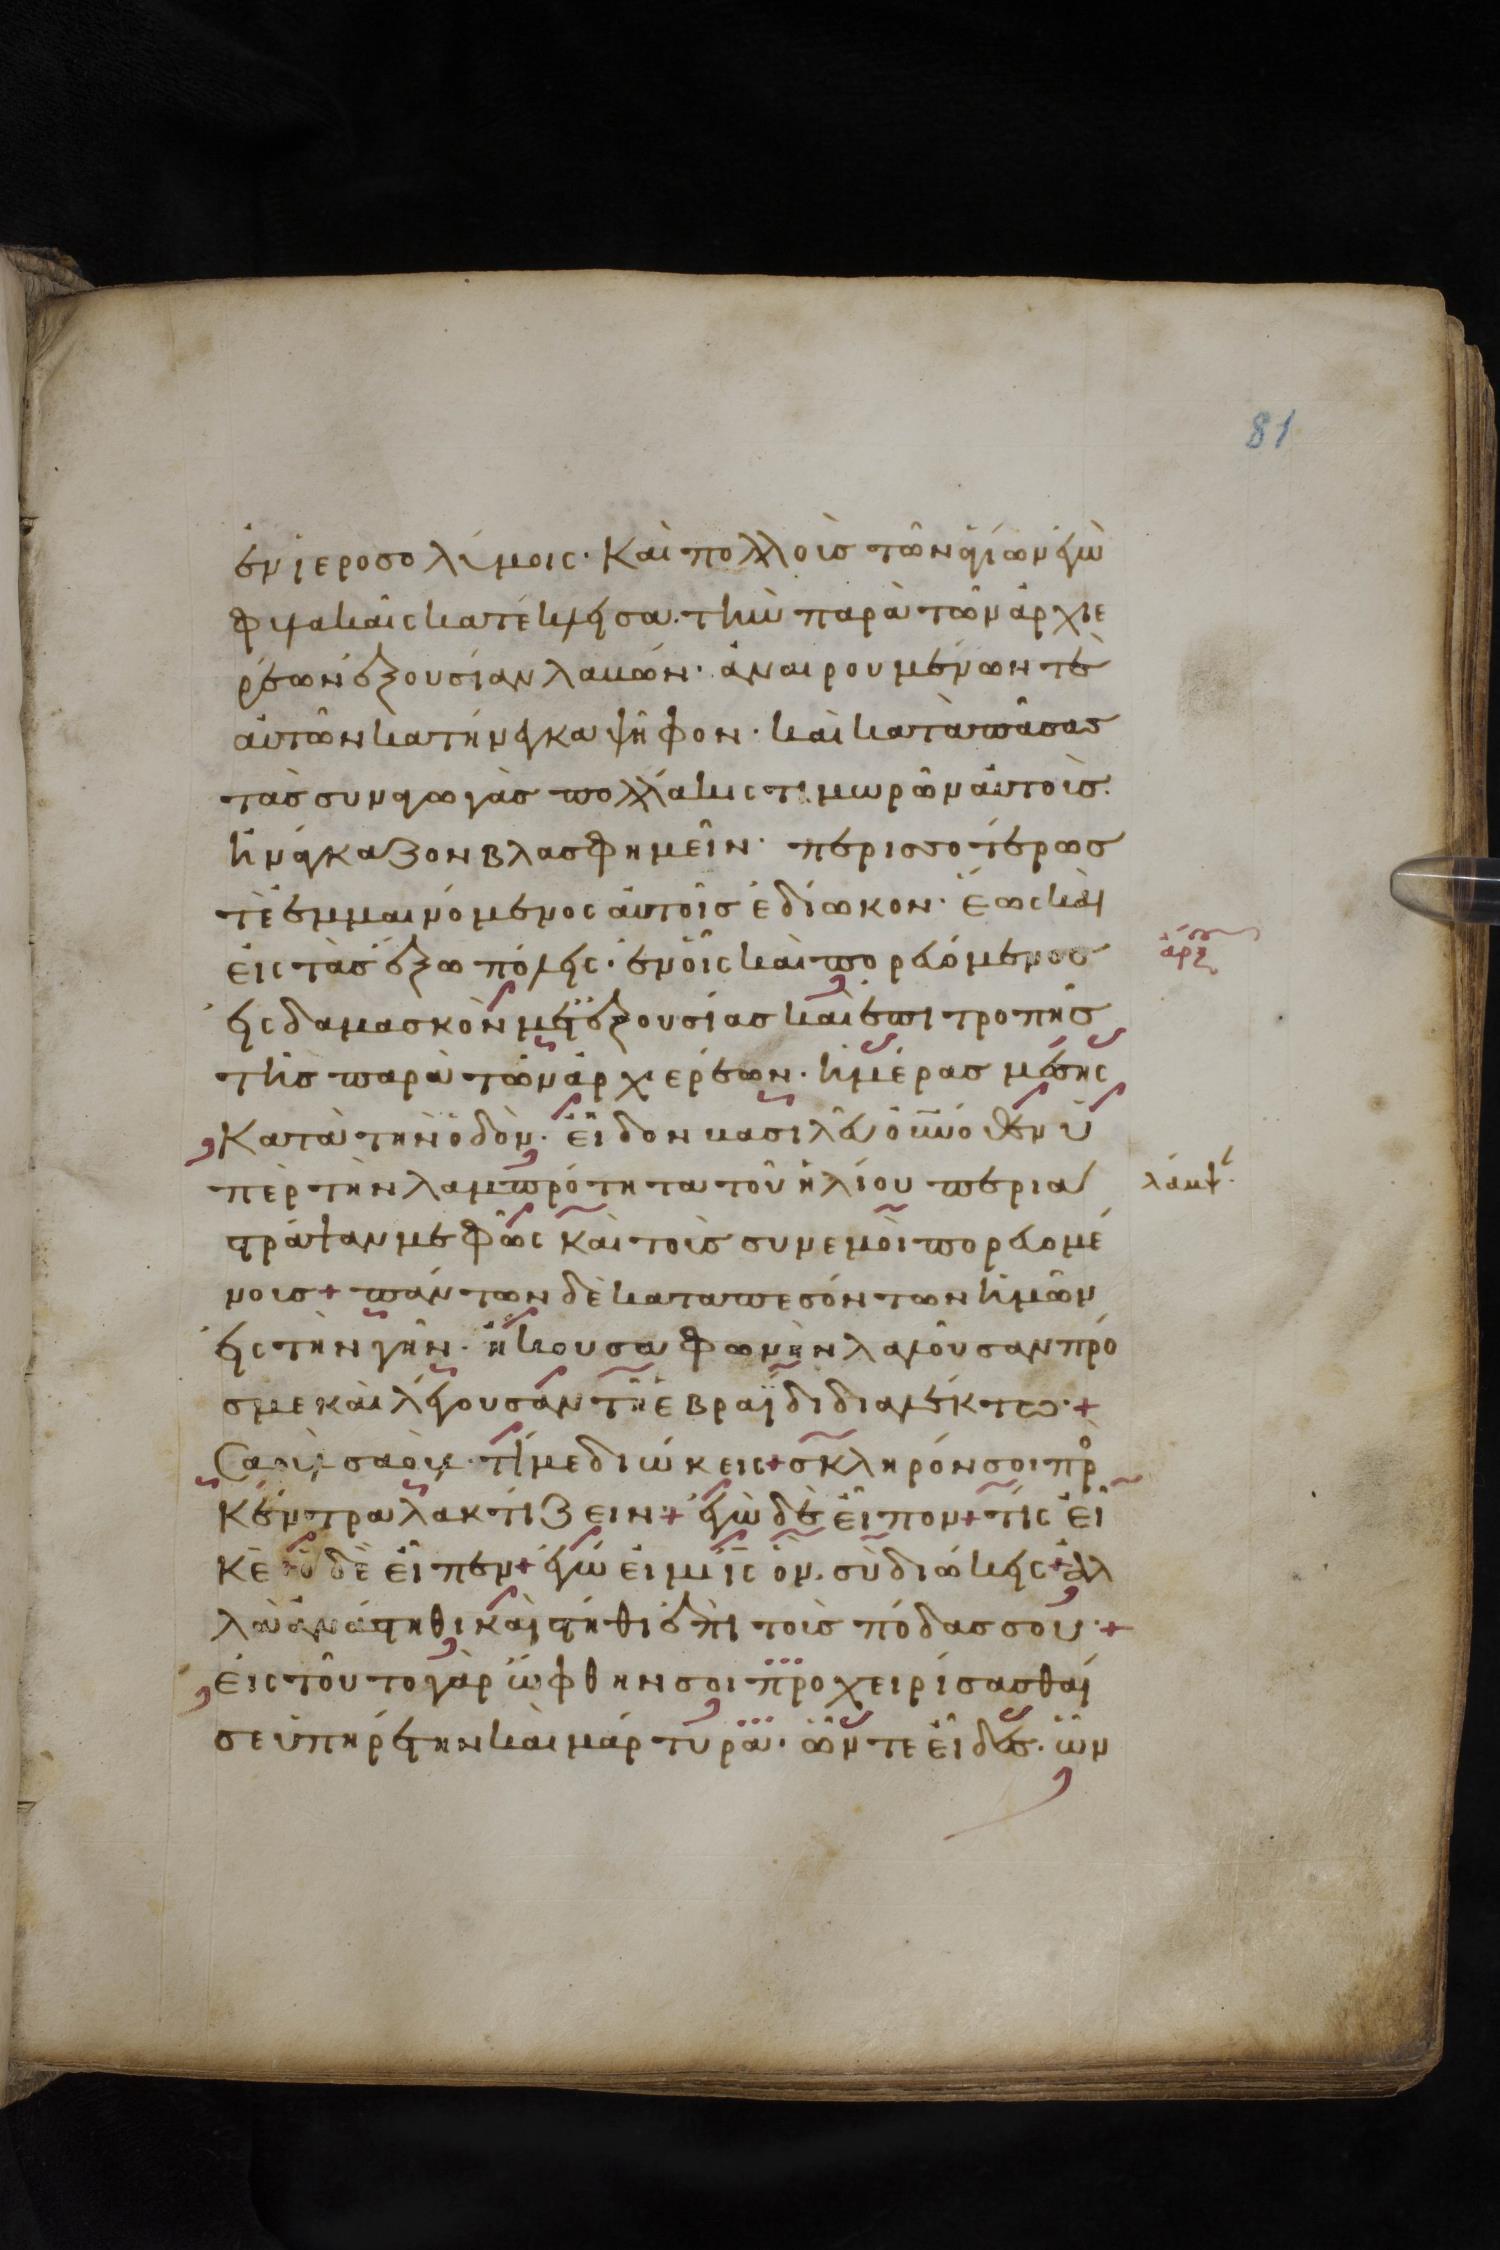 81
ἐν ἱεροσολύμοις· Καὶ πολλοὺς τῶν ἁγίων ἐγὼ
φυλακαῖς κατέκλεισα· τὴν παρὰ τῶν ἀρχιε
ρέων ἐξουσίαν λαβών· ἀναιρουμένων τὲ
αὐτῶν κατήνεγκα ψῆφον· καὶ κατὰ πάσας
τὰς συναγωγὰς πολλάκις τιμωρῶν αὐτοὺς·
ἠνάγκαζον βλασφημεῖν· περισσοτέρως
τὲ ἐμμαινόμενος αὐτοῖς ἐδίωκον· ἕως καὶ
εἰς τὰς ἔξω πόλεις· ἐν οἷς καὶ πορευόμενος
ἀρχ
εἰς δαμασκὸν μετ' ἐξουσίας καὶ ἐπιτροπῆς
τῆς παρὰ τῶν ἀρχιερέων· ἡμέρας μέσης
Κατὰ τὴν ὁδὸν· εἶδον βασιλεῦ οὐνόθεν ὑ
πὲρ τὴν λαμπρότητα τοῦ ἡλίου περια
λάμψ
στράψαν με φῶς καὶ τοὺς σὺν ἐμοὶ πορευομέ
νους + πάντων δὲ καταπεσόντων ἡμῶν
εἰς τὴν γῆν· ἤκουσα φωνὴν λαλοῦσαν πρό
σ με καὶ λέγουσαν τῆ ἑβραΐδι διαλέκτω· +
Σαοὺλ σαοὺλ· τί με διώκεις + σκληρόν σοι πρ
Κέντρα λακτίζειν + ἐγὼ δὲ εἶπον + τίς εἶ
κε ὁ δὲ εἶπεν + ἐγώ εἰμι ις ὃν σὺ διώκεις + ἀλ
λὰ ἀνάστηθι καὶ στῆθι ἐπὶ τοὺς πόδας σου· +
εἰς τοῦτο γὰρ ὤφθην σοι προχειρίσασθαί
σε ὑπηρέτην καὶ μάρτυρα· ὧν τε εἶδες· ὧν